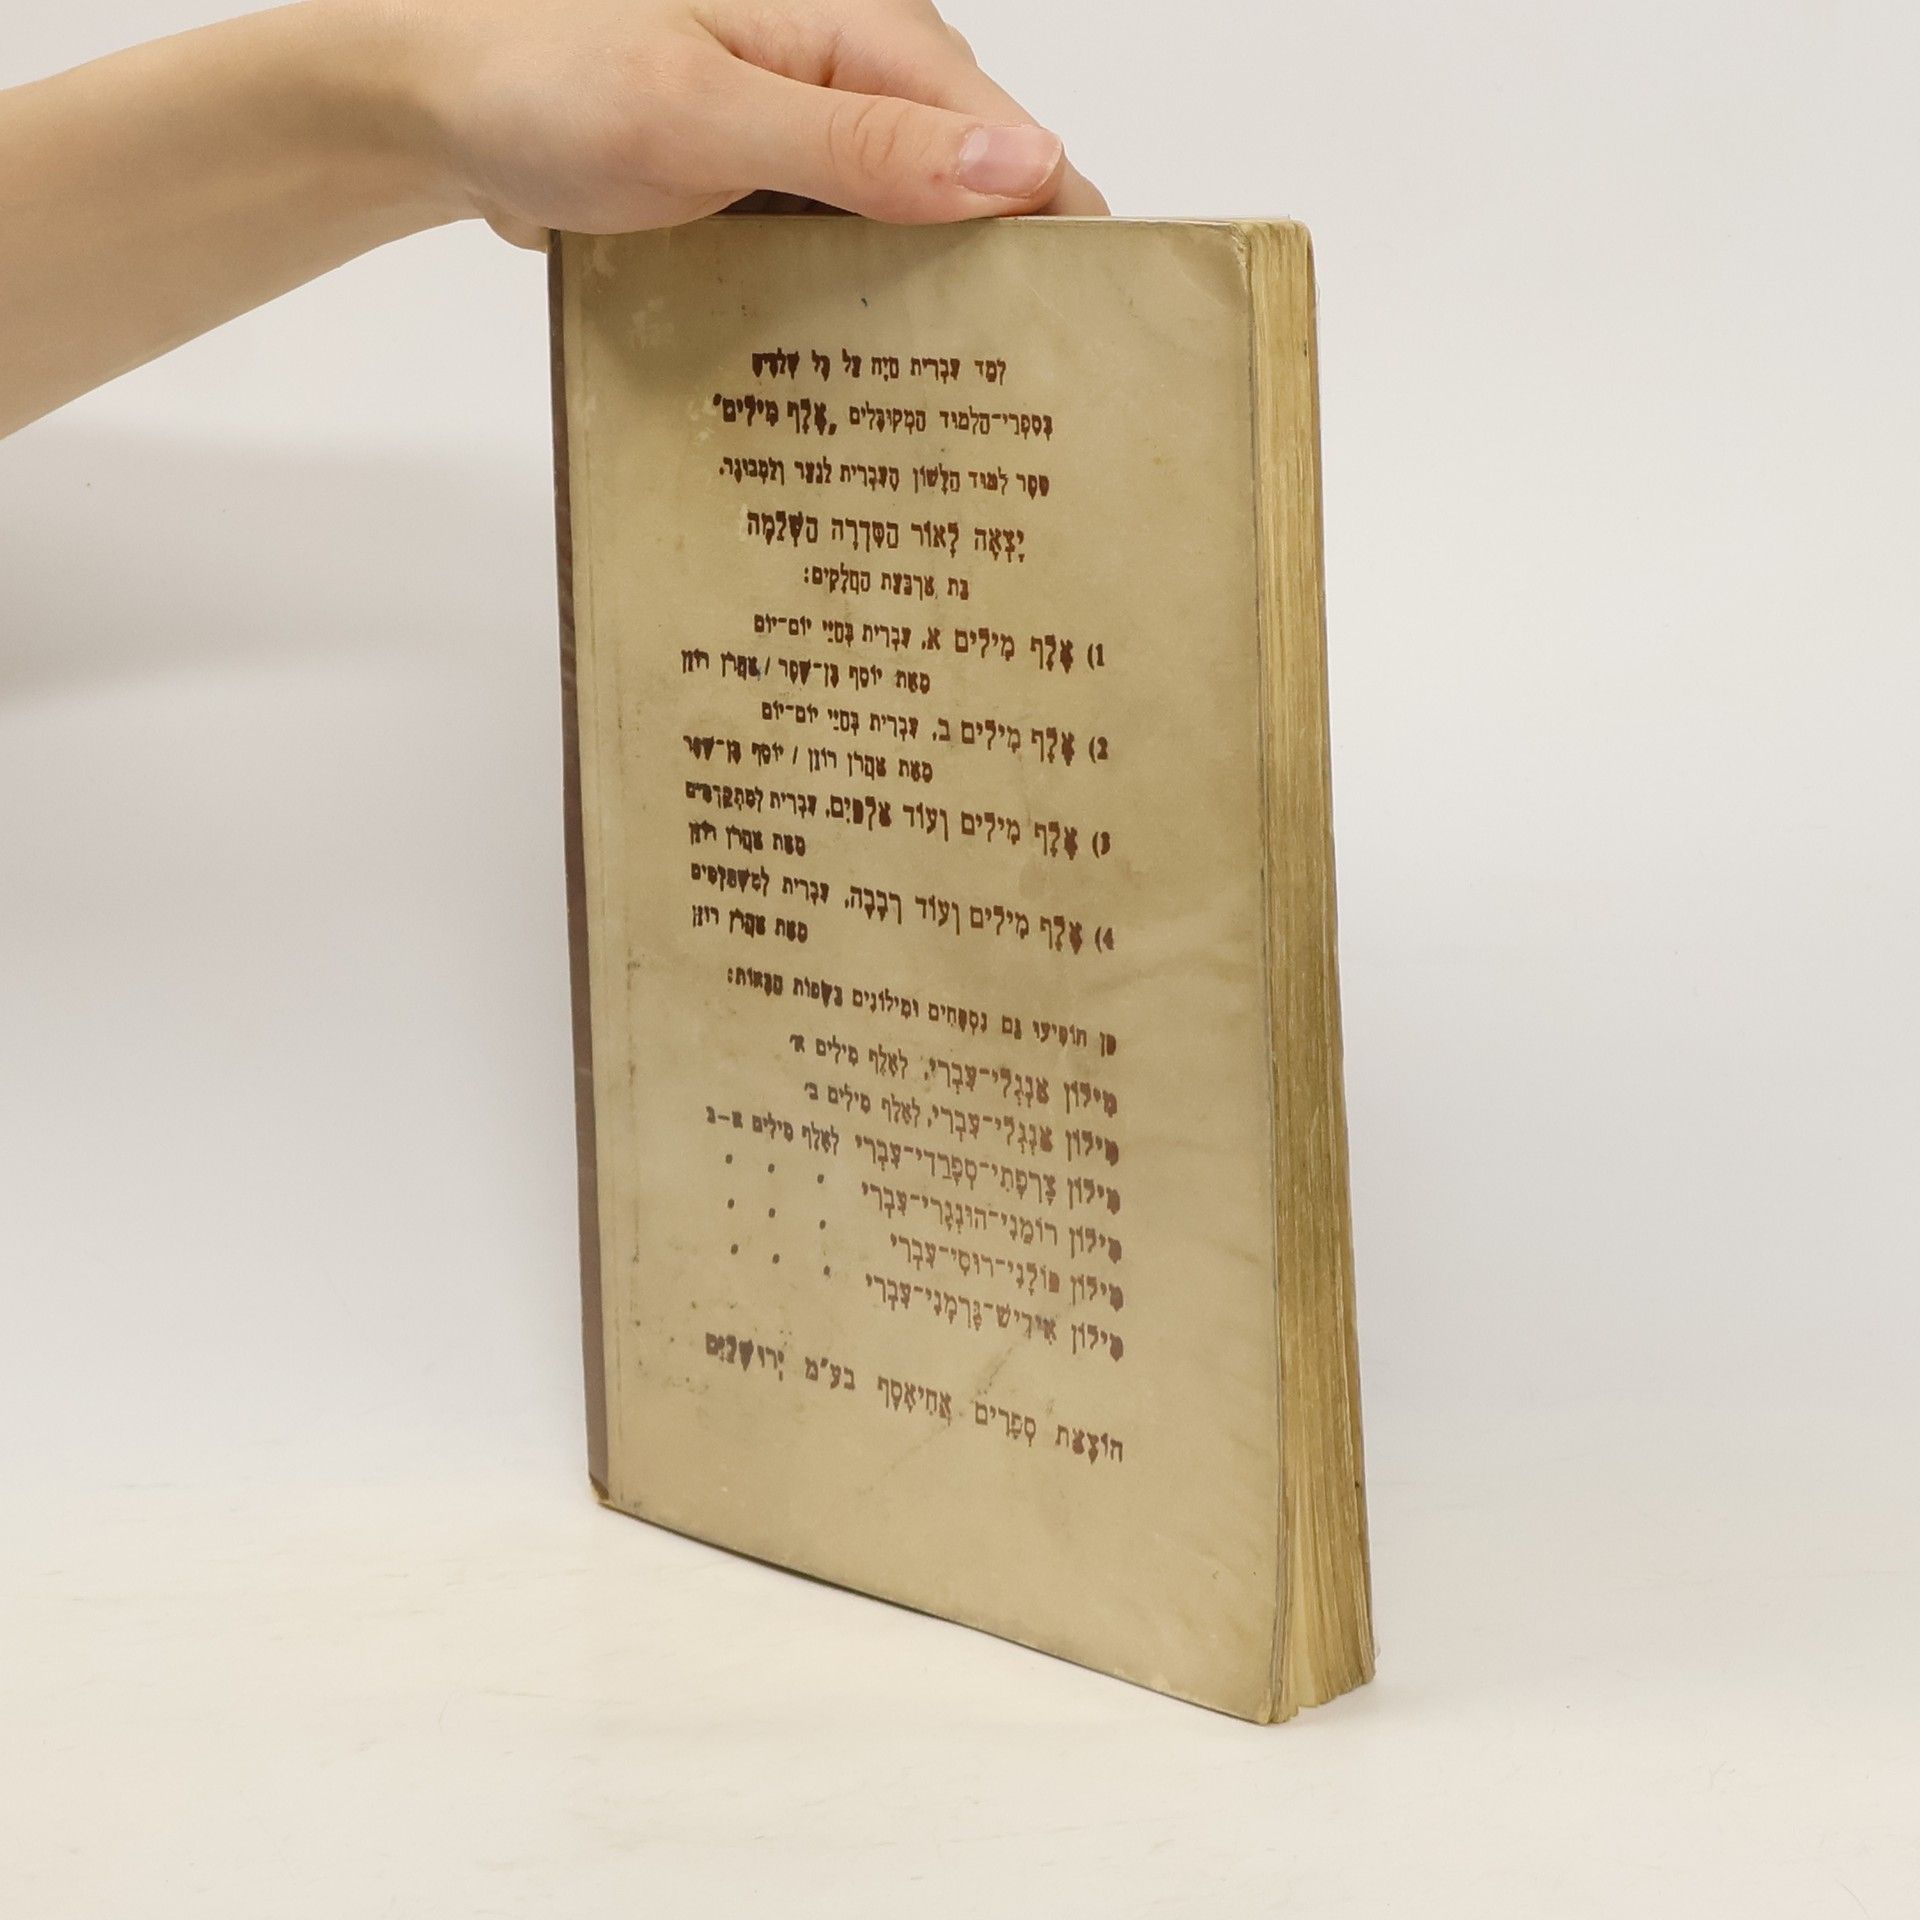 לְמַד עִבְרִית חַיָּה עַל כָּל שְׁלַבֶּיהָ
בְּסִפְרֵי־הַלִּמּוּד הַמְקֻבָּלִים „אֶלֶף מִילִים”
סֵפֶר לִמּוּד הַלָּשׁוֹן הָעִבְרִית לַנֹּעַר וְלַמְבוּגָּר.
יָצְאָה לָאוֹר הַסִּדְרָה הַשְּׁלֵמָה
בַּת אַרְבַּעַת הַחֲלָקִים:
1) אֶלֶף מִילִים א. עִבְרִית בְּחַיֵּי יוֹם־יוֹם
מֵאֵת יוֹסֵף בֶּן־שֶׁפֶר / אַהֲרֹן רוֹזֶן
2) אֶלֶף מִילִים ב. עִבְרִית בְּחַיֵּי יוֹם־יוֹם
מֵאֵת אַהֲרֹן רוֹזֶן / יוֹסֵף בֶּן־שֶׁפֶר
3) אֶלֶף מִילִים וְעוֹד אַלְפַּיִם. עִבְרִית לְמִתְקַדְּמִים
מֵאֵת אַהֲרֹן רוֹזֶן
4) אֶלֶף מִילִים וְעוֹד רְבָבָה. עִבְרִית
מֵאֵת אַהֲרֹן רוֹזֶן
כֵּן הוֹפִיעוּ גַּם נִסְפָּחִים וּמִילוֹנִים בַּשָּׂפוֹת הַבָּאוֹת:
מִילוֹן אַנְגְּלִי־עִבְרִי, לְאֶלֶף מִילִים א׳
מִילוֹן אַנְגְּלִי־עִבְרִי, לְאֶלֶף מִילִים ב׳
מִילוֹן צָרְפָתִי־סְפָרַדִּי־עִבְרִי לְאֶלֶף מִילִים א–ב
מִילוֹן רוֹמָנִי־הוּנְגָּרִי־עִבְרִי ״ ״ ״
מִילוֹן פּוֹלָנִי־רוּסִי־עִבְרִי ״ ״ ״
מִילוֹן אִידִישׁ־גֶּרְמָנִי־עִבְרִי ״ ״ ״
הוֹצָאַת סְפָרִים אֲחִיאָסָף בע״מ יְרוּשָׁלַיִם